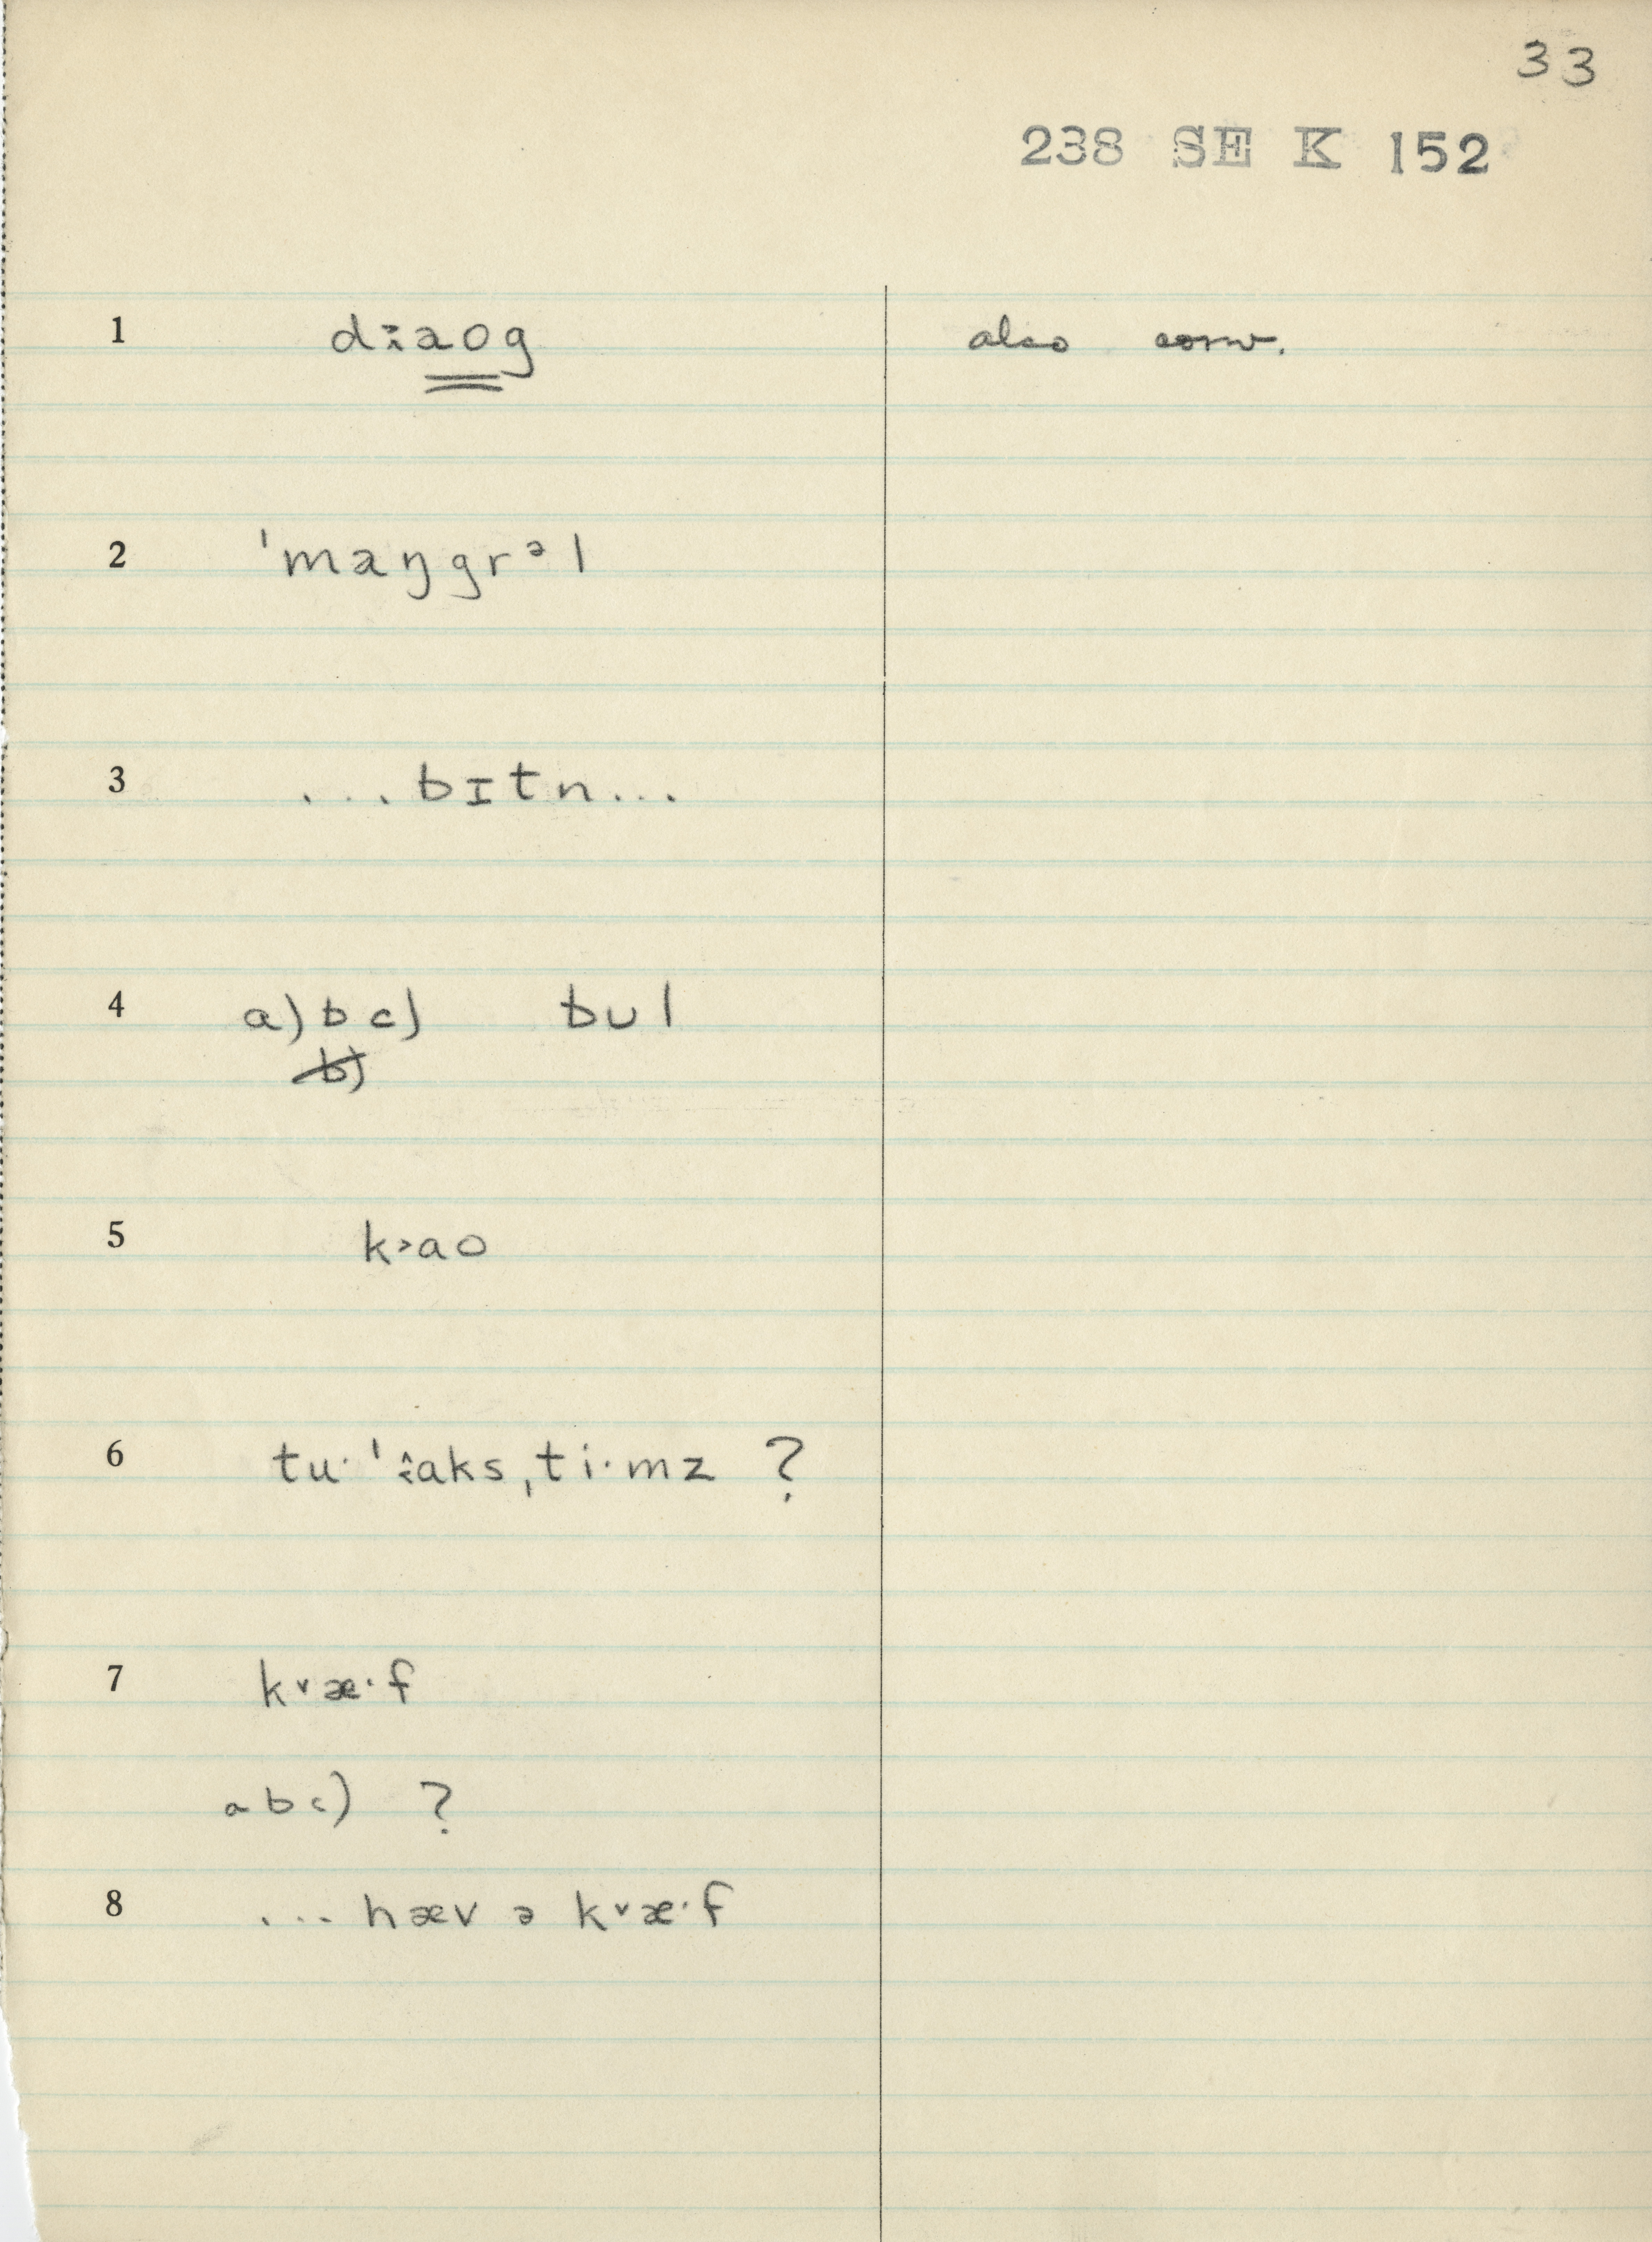 33
238 SE K 152
1 daog also conv.
2 ˈmaŋgrᵊl
3 ...bɪtn...
4 a) b c) bul
b)
5 k˃ao
6 tu· ˈaks,ti·mz ?
7 k˅æ·f
abc) ?
8 ...hæv ə k˅æ·f